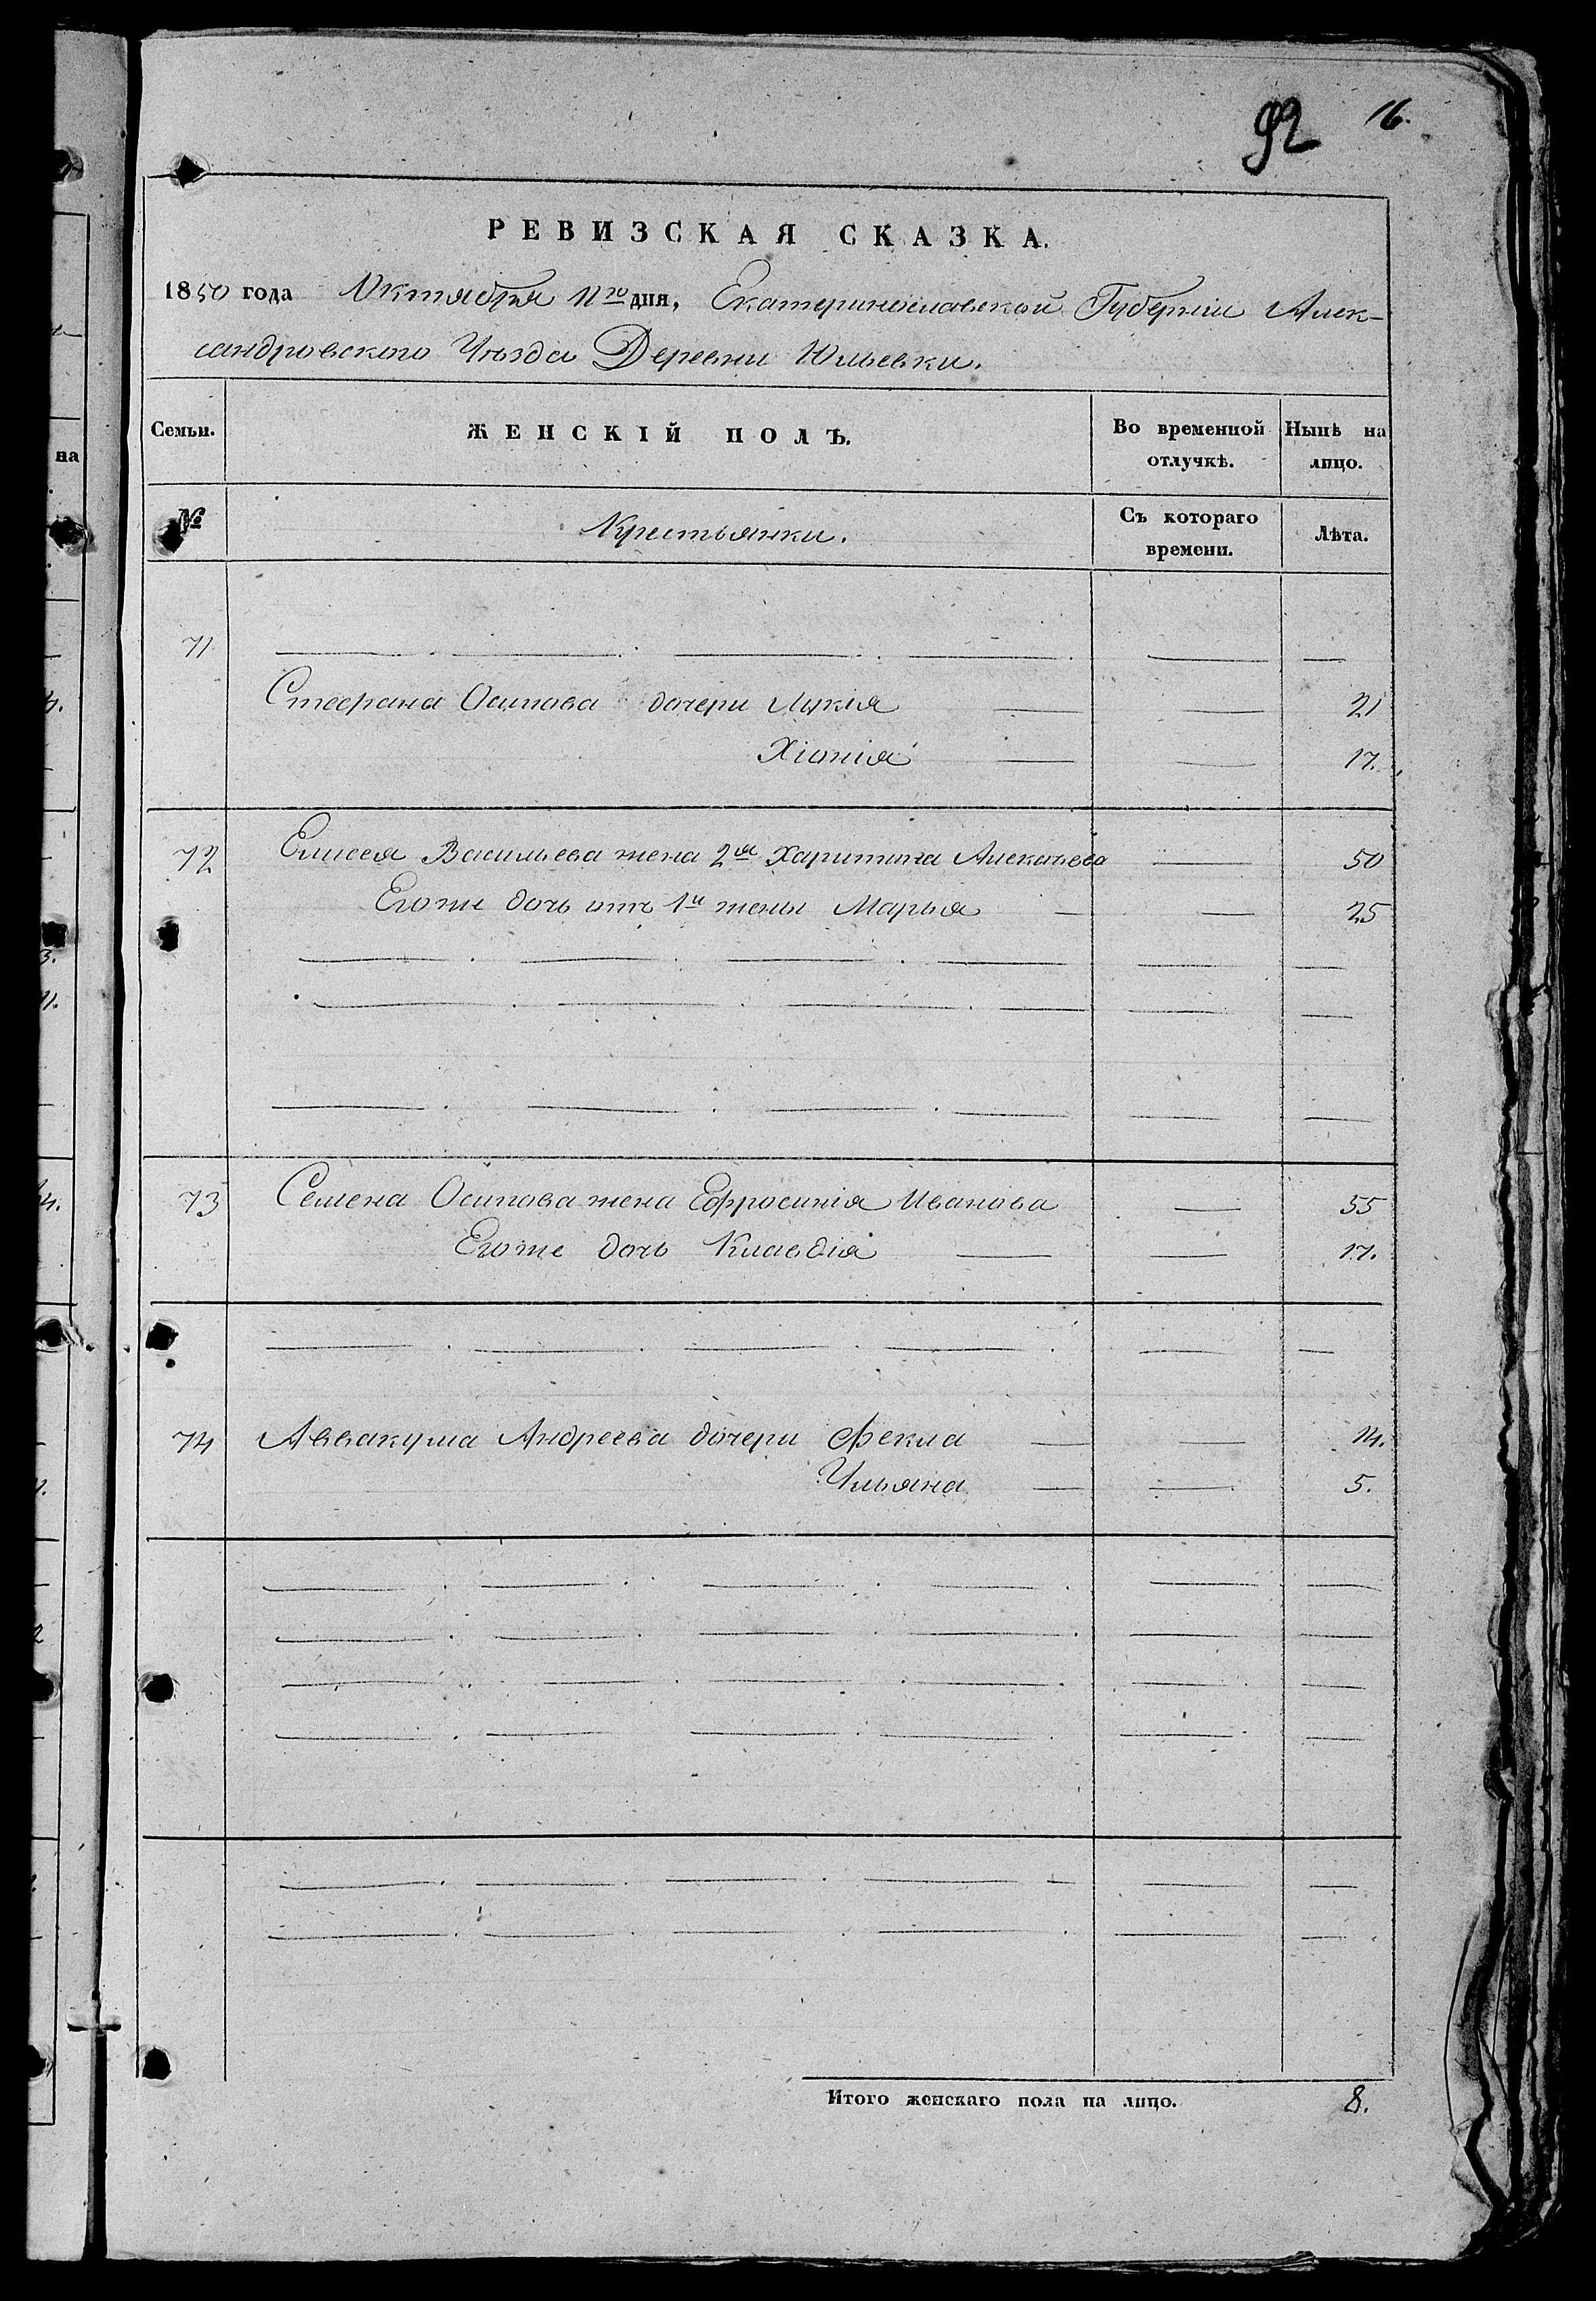 92 16.
РЕВИЗСКАЯ СКАЗКА.
1850 года Октября 11го дня, Екатеринославской Губерніи Алек-
сандровского Уѣзда Деревни Юльевки.
Семьи. ЖЕНСКІЙ ПОЛЪ. Во временной отлучкѣ. Нынѣ на лицо.
№ Крестьянки. Съ котораго времени. Лѣта.
71
Стефана Осипова дочери Лукія 21
Хіонія 17.
72 Елисея Васильева жена 2я Харитина Алексѣева 50
Егоже дочь отъ 1й жены Марья 25
73 Семена Осипова жена Ефросинія Иванова 55
Егоже дочь Клавдія 17.
74 Аввакума Андреева дочери Фекла 14.
Ульяна 5.
Итого женскаго пола на лицо. 8.